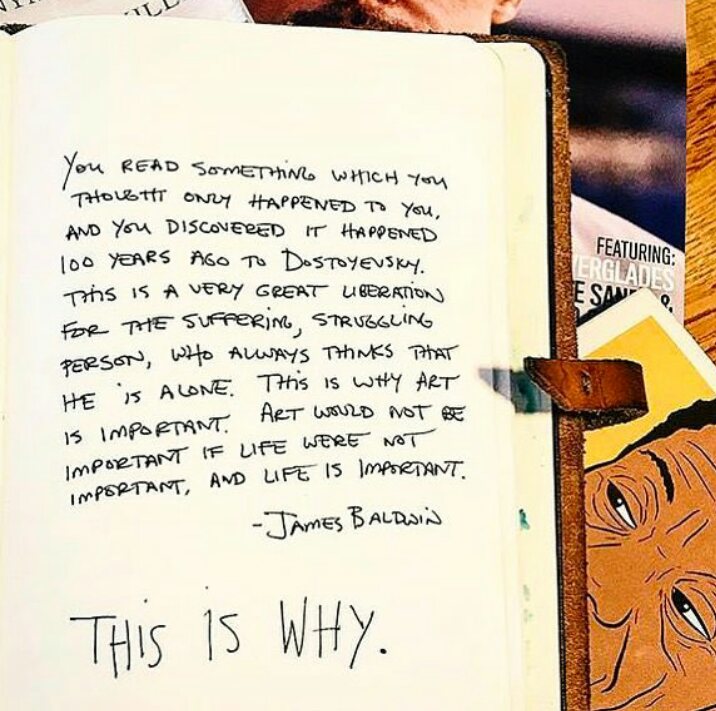 ILL
You READ SOMETHING WHICH YOU
THOUGHT ONLY HAPPENED TO YOU,
AND YOU DISCOVERED IT HAPPENED
100 YEARS AGO TO DOSTOYEVSKY.
THIS IS A VERY GREAT LIBERATION
FOR THE SUFFERING, STRUGGLING
PERSON, WHO ALWAYS THINKS THAT
HE IS ALONE. THIS IS WHY ART
IS IMPORTANT. ART WOULD NOT BE
IMPORTANT IF LIFE WERE NOT
IMPORTANT, AND LIFE IS IMPORTANT.
-JAMES BALDWIN
THIS IS WHY.
FEATURING:
VERGLADES
E SAN &